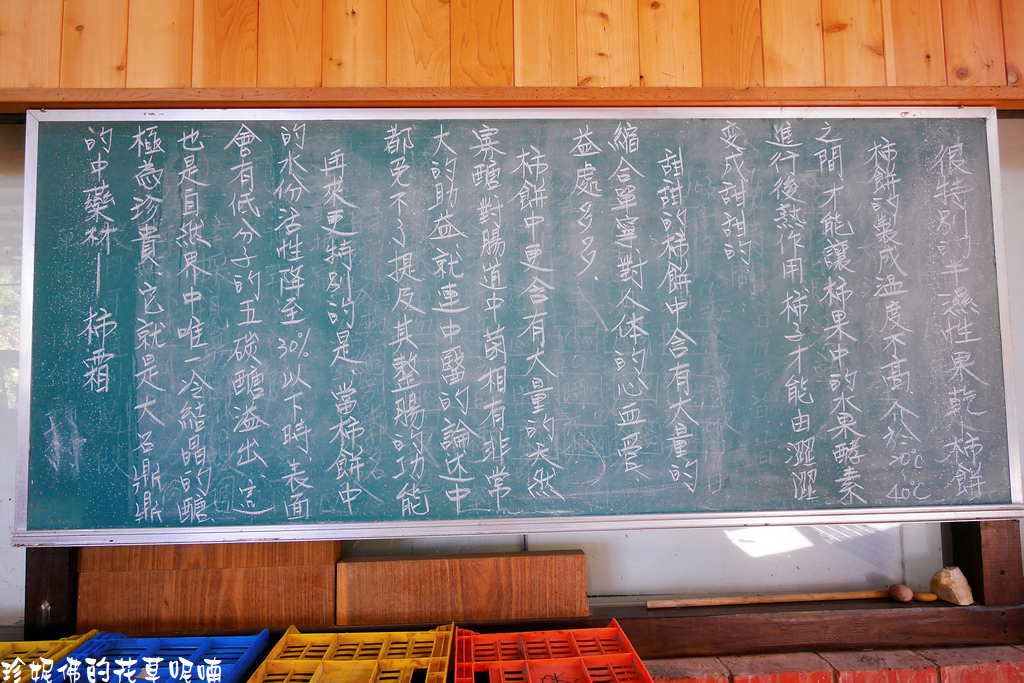 很特別的半濕性果乾柿餅
柿餅的製成溫度不高、介於20℃40℃
之間才能讓柿果中的水果酵素
進行後熟作用、柿子才能由澀澀
变成甜甜的
甜甜的柿餅中、含有大量的
縮合單寧對人体的心血管、
益處多多、
柿餅中更含有大量的天然
寡醣、對腸道中菌相有非常
大的助益、就連中醫的論述中
都免不了提及其整腸的功能
再來更特別的是、當柿餅中
的水份活性降至30%以下時、表面
會有低分子的五碳醣溢出、這
也是自然界中唯一冷結晶的醣、
極為珍貴、它就是大名鼎鼎
的中藥材—柿霜
珍妮佛的花草呢喃